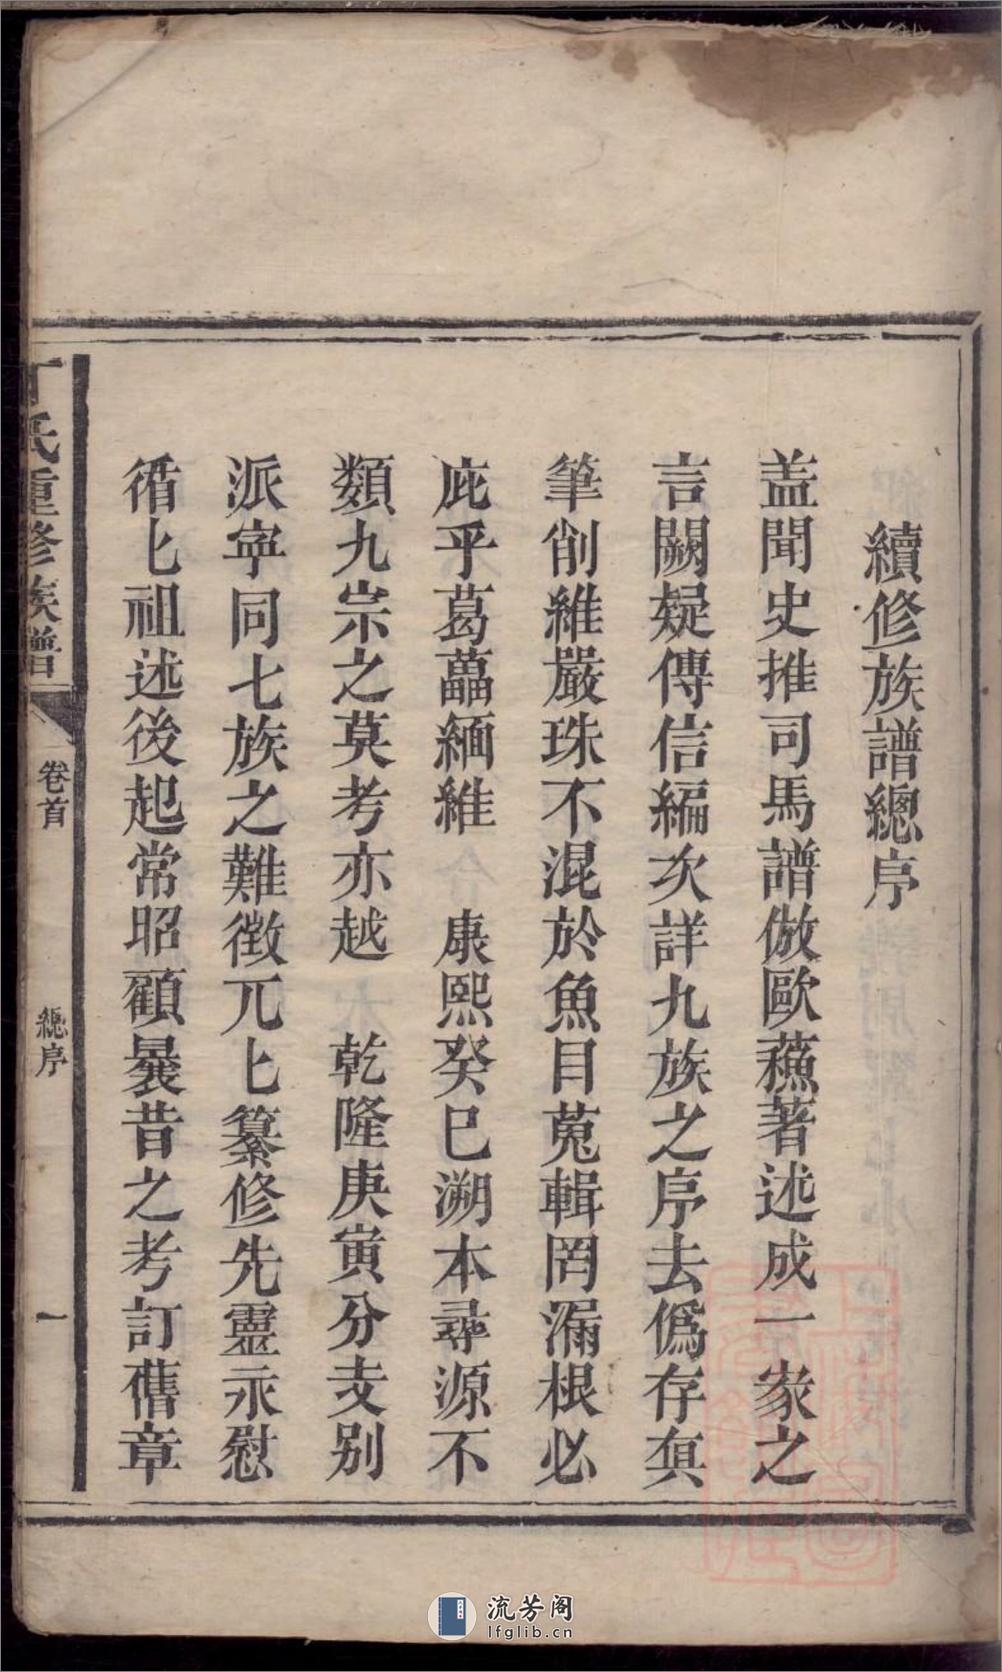 續修族譜總序
盖聞史推司馬譜倣歐蘓著述成一家之
言闕疑傳信編次詳九族之序去僞存眞
筆削維嚴珠不混於魚目蒐輯罔漏根必
庇乎葛藟緬維 康熙癸巳溯本尋源不
類九宗之莫考亦越 乾隆庚寅分支别
派寕同七族之難徴兀匕纂修先靈永慰
循匕祖述後起常昭顧曩昔之考訂舊章
丁氏重修族譜 卷首 總序 一
流芳阁
lfglib.cn